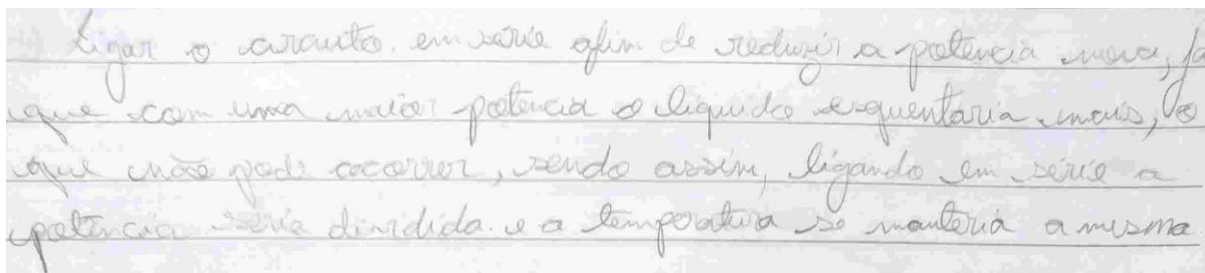 Ligar o circuito em série afim de reduzir a potencia nova, já
que com uma maior potencia o liquido esquentaria mais, o
que não pode ocorrer, sendo assim, ligando em série a
potencia seria dividida e a temperatura se manteria a mesma